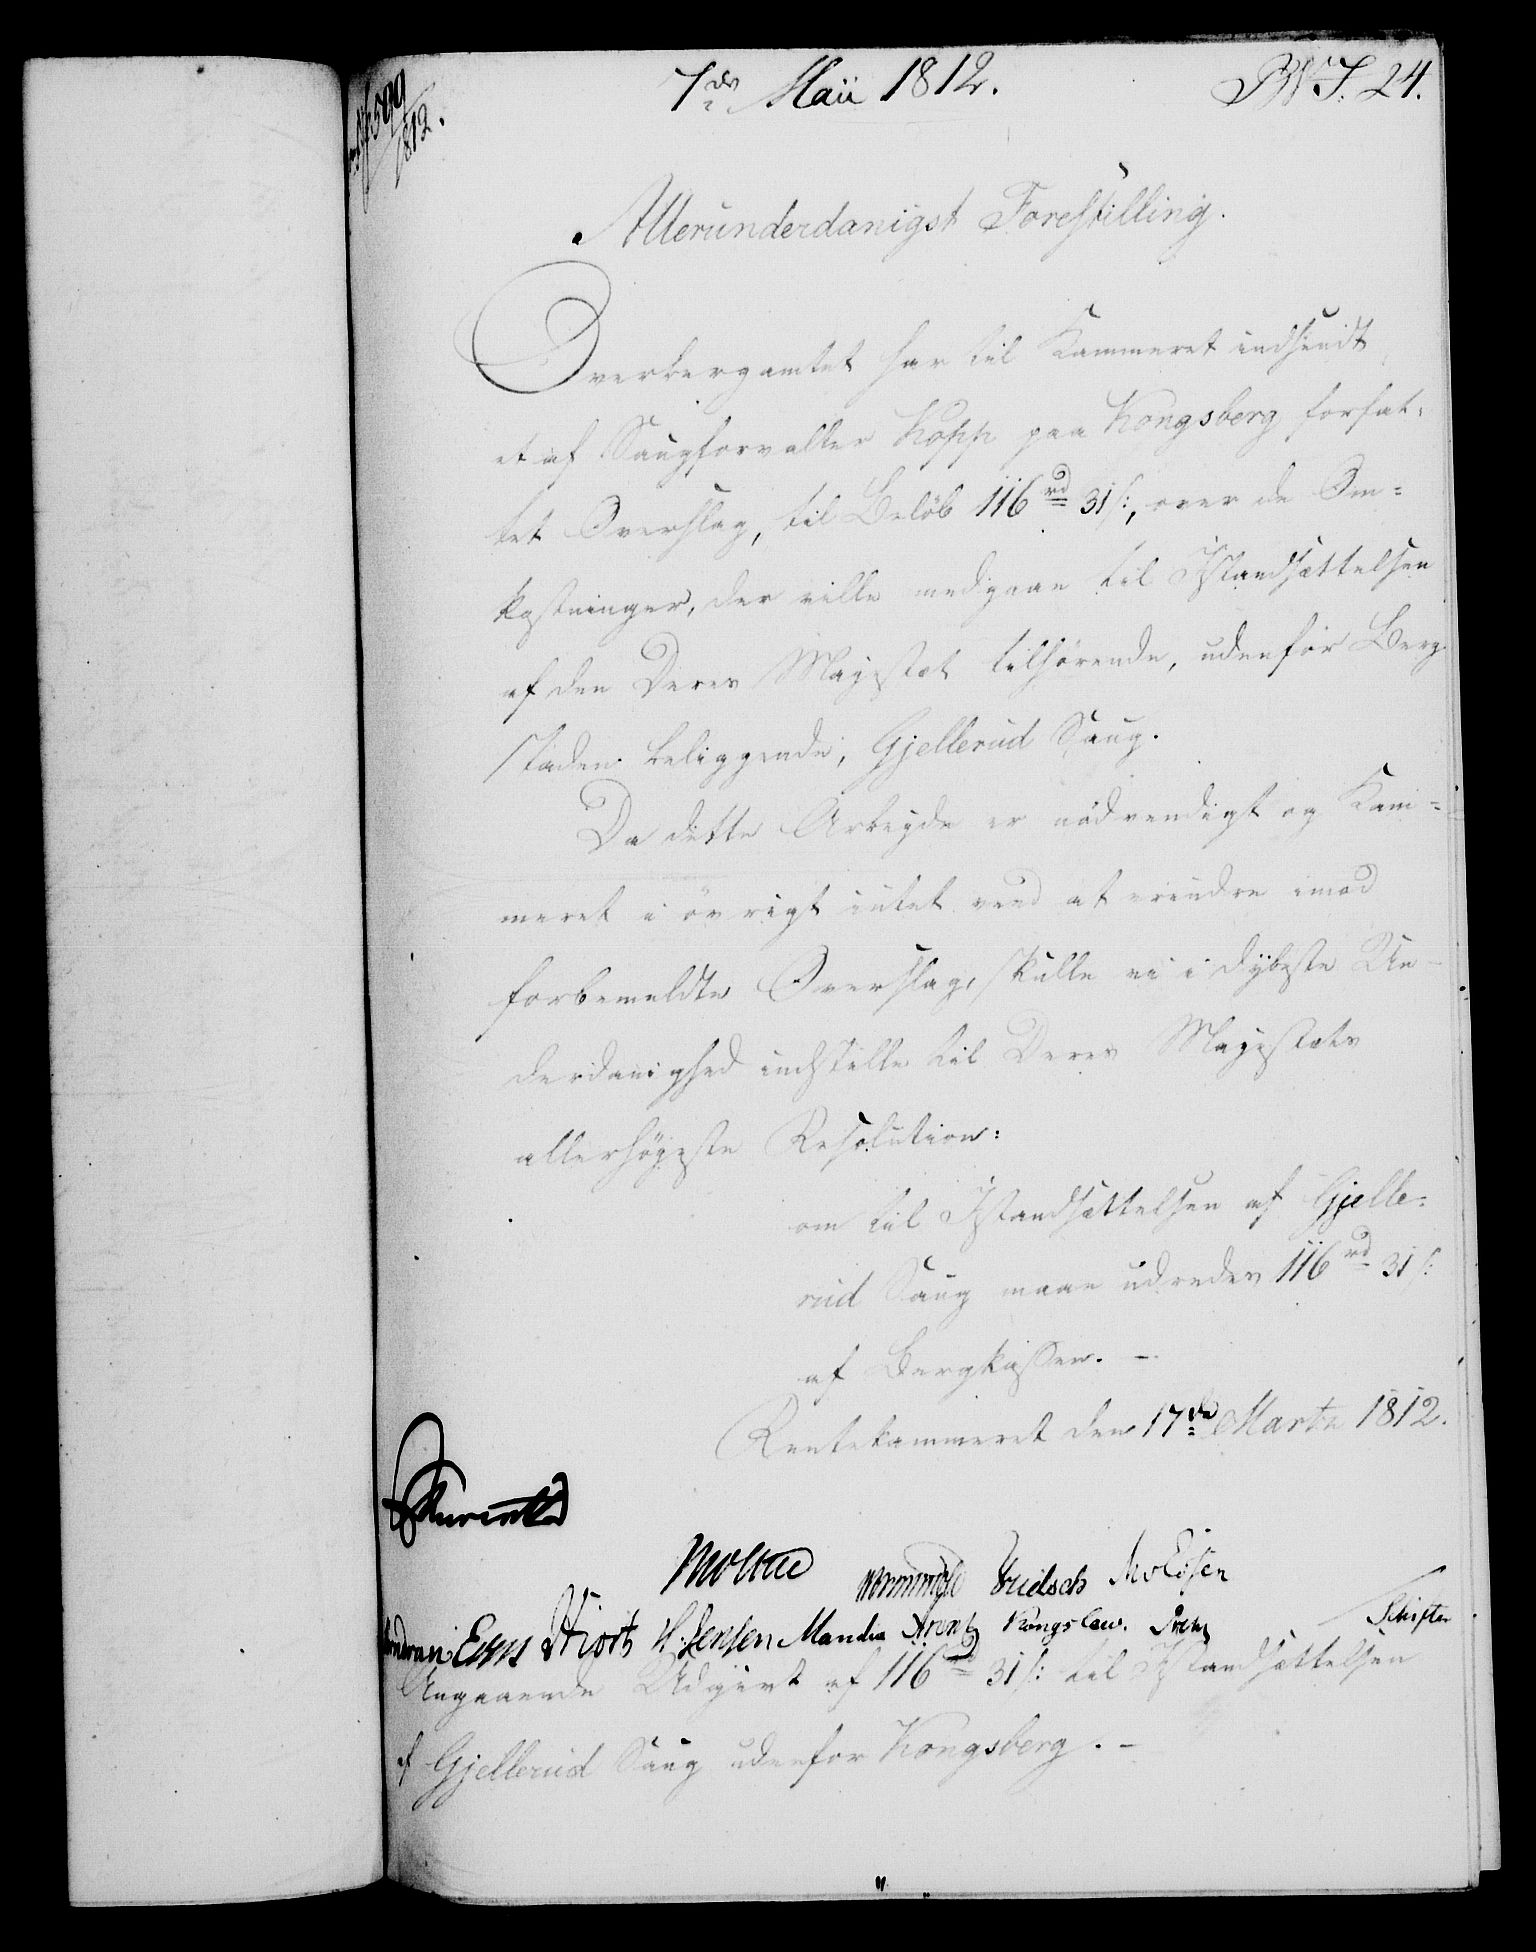 7de Maii 1812.
B. N. J. 24.
No 599
1812.
Allerunderdanigst Forestilling.
Overbergamtet har til Kammeret indsendt
et af Saugforvalter Kopp paa Kongsberg forfat-
tet Overslag, til Beløb 116 rd 31 s:, over de Om-
kostninger, der ville medgaae til Istandsættelsen
af den Deres Majestæt tilhørende, udenfor Berg
staden beliggende, Gjellerud Saug.
Da dette Arbeyde er nødvendigt og Kam-
meret i øvrigt intet veed at erindre imod
forbemeldte Overslag, skulle vi i dybeste Un-
derdanighed indstille til Deres Majestæts
allerhøyeste Resolution:
om til Istandsættelsen af Gjelle-
rud Saug maae udredes 116 rd 31 s:
af Bergkassen. —
Rentekammeret den 17de Martz 1812.
Moltke Wormskiold
Hiort H. Jensen Manthe Arentz Kongslew.
Angaaende Udgivt af 116 rd 31 s: til Istandsættelsen
af Gjellerud Saug udenfor Kongsberg. —